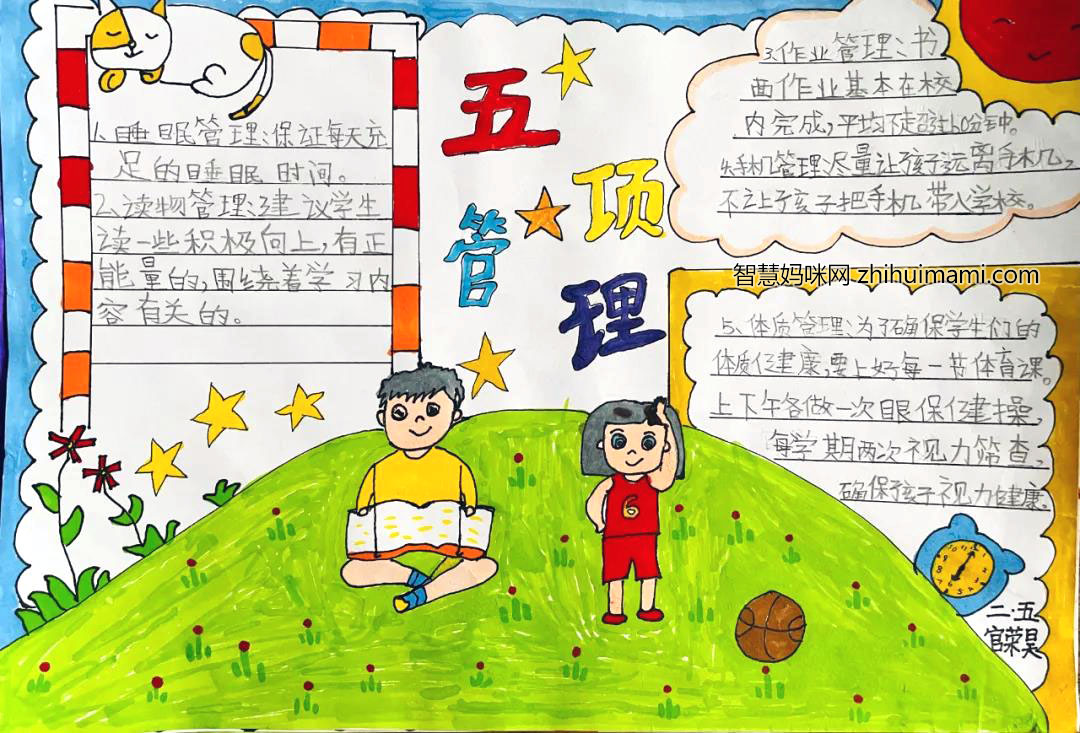 五项管理
1.睡眠管理:保证每天充
足的睡眠时间。
2.读物管理:建议学生
读一些积极向上,有正
能量的,围绕着学习内
容有关的。
3.作业管理:书
面作业基本在校
内完成,平均不超过60分钟。
4.手机管理:尽量让孩子远离手机,
不让孩子把手机带入学校。
智慧妈咪网 zhihuimami.com
5、体质管理:为了确保学生们的
体质健康,要上好每一节体育课。
上下午各做一次眼保健操,
每学期两次视力筛查,
确保孩子视力健康。
6
二·五
官荣昊